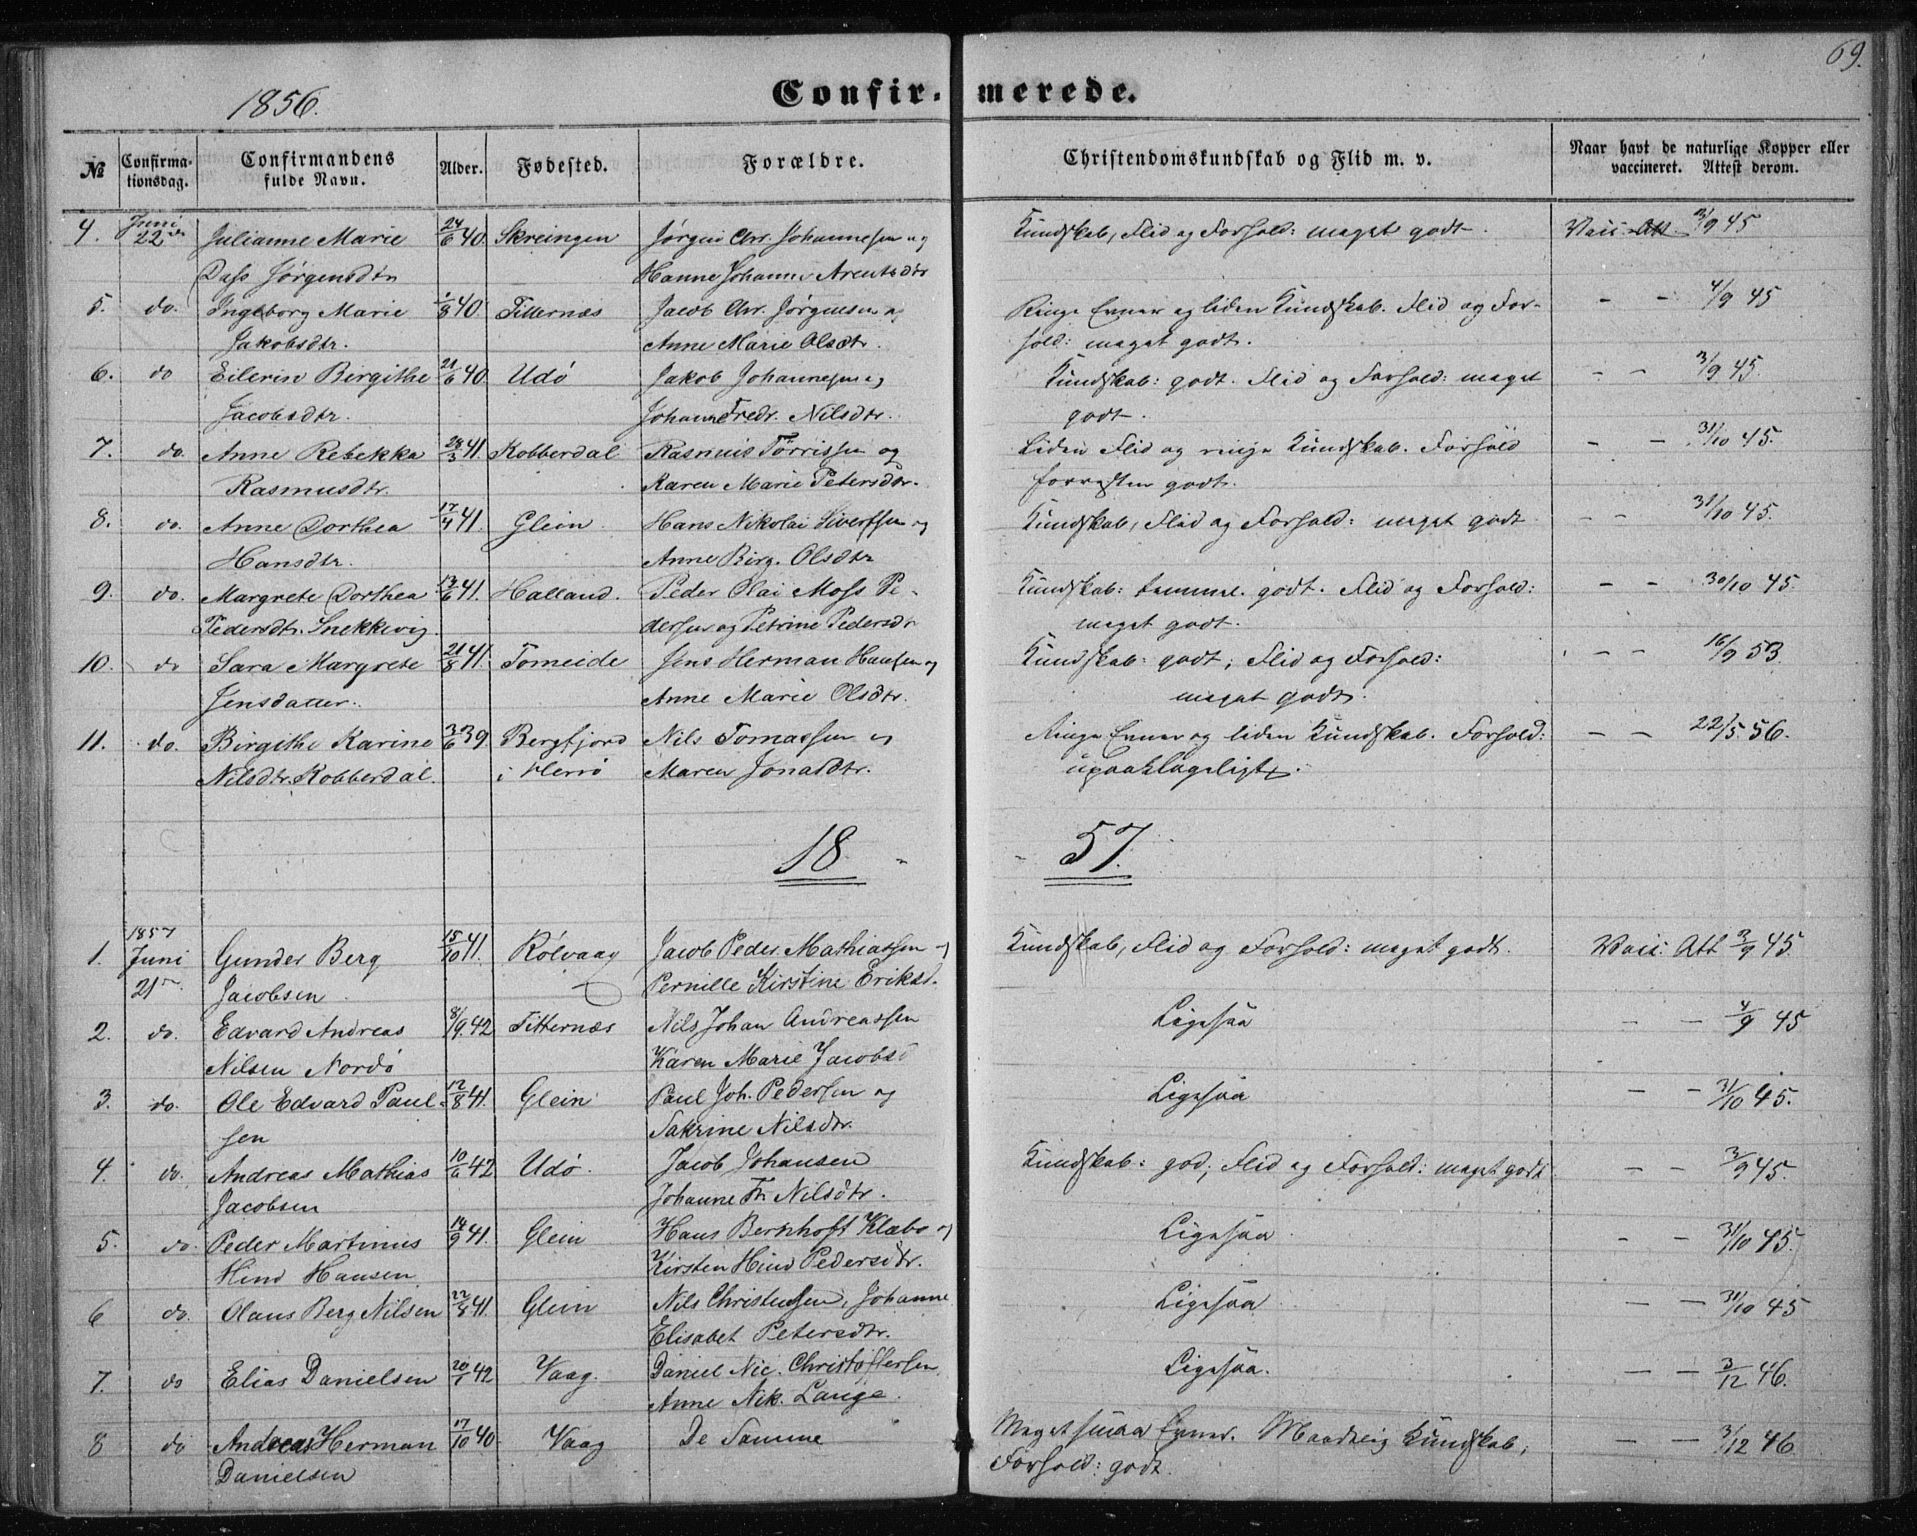 69.
1856.
Confir- merede.
№ Confirma-tionsdag. Confirmandens fulde Navn. Alder. Fødested. Forældre. Christendomskundskab og Flid m. v. Naar havt de naturlige Kopper eller vaccineret. Attest derom.
4. Juni 22 Julianne Marie 24/6 40. Skreingen Jørgen Chr. Johannesen og Kundskab, Flid og Forhold: maget godt. Vacc. Att. 3/9 45
Dass Jørgensdtr Hanne Johanne Arentsdtr
5. do. Ingeborg Marie 1/8 40 Titternæs Jacob Chr. Jørgensen og Ringe Evner og liden Kundskab. Flid og For- - - 4/9 45
Jakobsdtr. Anne Marie Olsdtr. hold: maget godt.
6. do Eilerin Bergithe 21/6 40 Udø Jakob Johannesen og Kundskab: godt. Flid og Forhold: maget - - 3/9 45.
Jacobsdtr. Johanne Fredr. Nilsdtr. godt.
7. do. Anne Rebekka 28/3 41. Kobberdal Rasmus Tørrissen og Liden Flid og ringe Kundskab. Forhold - - 31/10 45.
Rasmusdtr. Karen Marie Petersdtr. forresten godt.
8. do. Anne Dorthea 17/4 41. Glein Hans Nikolai Sivertsen og Kundskab, Flid og Forhold: maget godt - - 31/10 45.
Hansdtr. Anne Birg. Olsdtr
9. do. Margrete Dorthea 13/6 41. Halland. Peder Olai Moss Pe- Kundskab: temmel. godt. Flid og Forhold: - - 30/10 45.
Pedersdtr. Snekkevig. dersen og Petrine Pedersdr maget godt.
10. do Sara Margrete 21/8 41. Tomeide Jens Herman Hansen og Kundskab: godt; Flid og Forhold: - - 16/9 53.
Jensdatter. Anne Marie Olsdtr. maget godt.
11. do. Birgithe Karine 3/6 39. Bergfjord Nils Tomassen og Ringe Evner og liden Kundskab. Forhold: - - 22/5. 56.
Nilsdtr. Kobberdal. i Herrø Maren Jonasdtr. upaaklageligt.
18 57.
1857
1. Juni Gunder Berg 15/10 41. Rølvaag Jacob Peder Mathiassen og Kundskab, Flid og Forhold: maget godt. Vacc. Att 3/9 45.
21 Jacobsen Pernille Kirstine Eriksd.
2. do. Edvard Andreas 8/9 42 Titternæs Nils Johan Andreassen Ligesaa - - 4/9 45
Nilsen Nordø Karen Marie Jacobsd
3. do. Ole Edvard Paul- 12/8 41. Glein Paul Joh. Pedersen og Ligesaa - - 31/10 45.
sen Sakrine Nilsdtr.
4. do. Andreas Mathias 10/6 42 Udø. Jacob Johansen Kundskab: god; Flid og Forhold: maget godt - - 3/9 45.
Jacobsen Johanne Fr. Nilsdtr.
5. do. Peder Martinus 14/9 41. Glein Hans Bernhoft Klæbo og Ligesaa - - 31/10 45.
Hind Hansen Kirsten Hind Pedersdtr.
6 do. Olaus Berg Nilsen 22/8 41. Glein Nils Christensen, Johanne Ligesaa - - 31/10 45
Elisabet Petersdtr.
7. do Elias Danielsen 20/1 42 Vaag. Daniel Nic. Christoffersen Ligesaa. - - 3/12 46.
Anne Nik. Lange.
8 do Andreas Herman 17/10 40 Vaag De Samme Maget smaa Evner. Maadelig Kundskab; - - 3/12 46
Danielsen Forhold: godt.